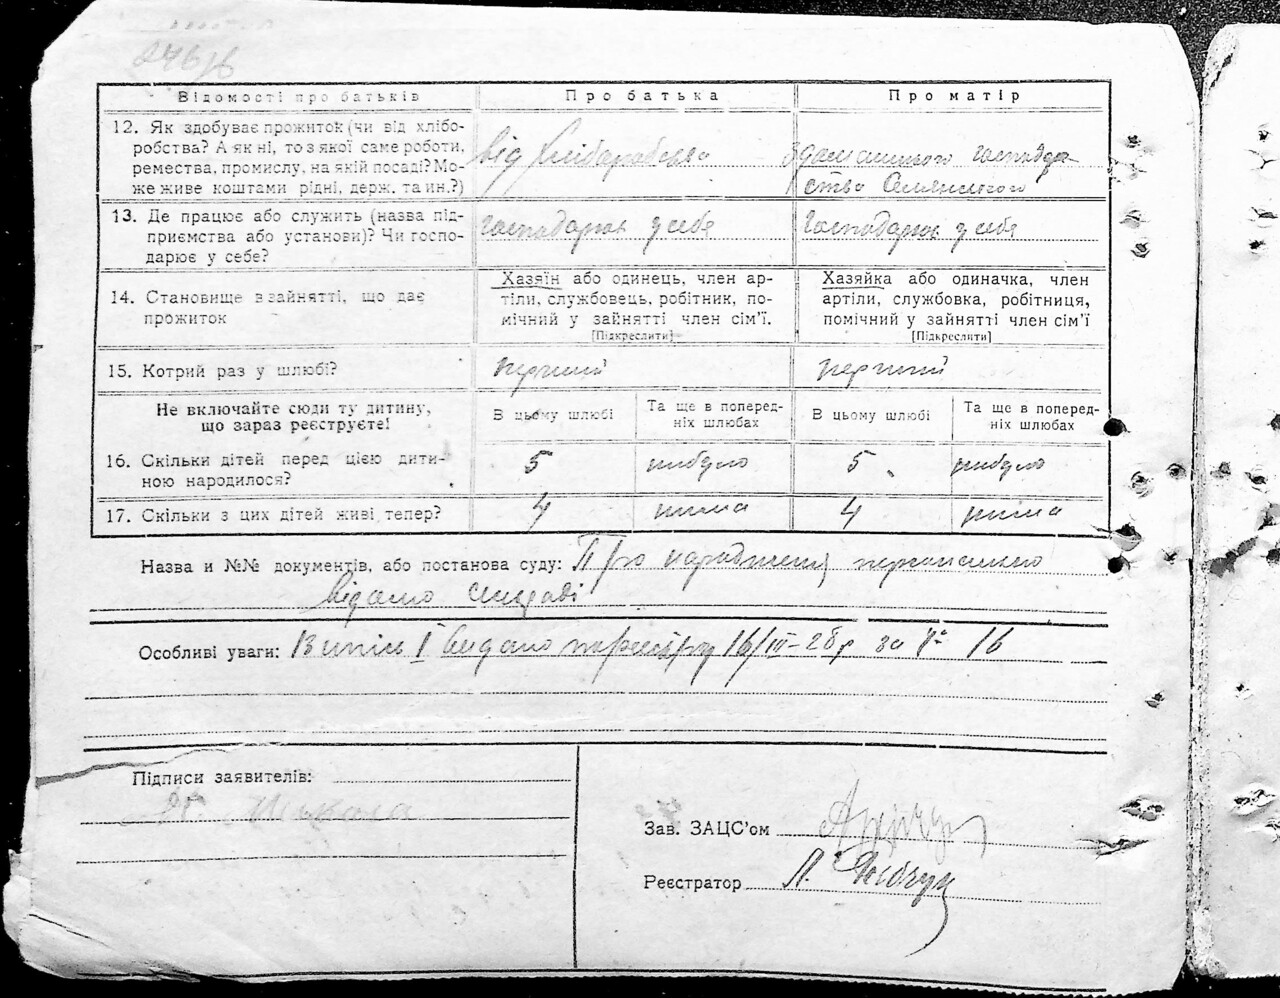 Відомості про батьків
Про батька
Про матір
12. Як здобуває прожиток (чи від хлібо-
робства? А як ні, то з якої саме роботи,
ремества, промислу, на якій посаді? Мо-
же живе коштами рідні, держ. та ин.?)
від хліборобства
з домашнього господар
ства
13. Де працює або служить (назва під-
приємства або установи)? Чи госпо-
дарює у себе?
господарює у себе
господарює у себе
14. Становище в зайнятті, що дає
прожиток
Хазяїн або одинець, член ар-
тіли, службовець, робітник, по-
мічний у зайнятті член сім'ї.
[Підкреслити]
Хазяйка або одиначка, член
артіли, службовка, робітниця,
помічний у зайнятті член сім'ї
[Підкреслити]
15. Котрий раз у шлюбі?
перший
перший
Не включайте сюди ту дитину,
що зараз реєструєте!
В цьому шлюбі
Та ще в поперед-
ніх шлюбах
В цьому шлюбі
Та ще в поперед-
ніх шлюбах
16. Скільки дітей перед цією дити-
ною народилося?
5
небуло
5
небуло
17. Скільки з цих дітей живі тепер?
4
нима
4
нима
Назва и №№ документів, або постанова суду: Про народження персонально
відомо
Особливі уваги: Випись І видано по реєстру 16/III-28р за № 16
Підписи заявителів:
Зав. ЗАЦС'ом
Реєстратор